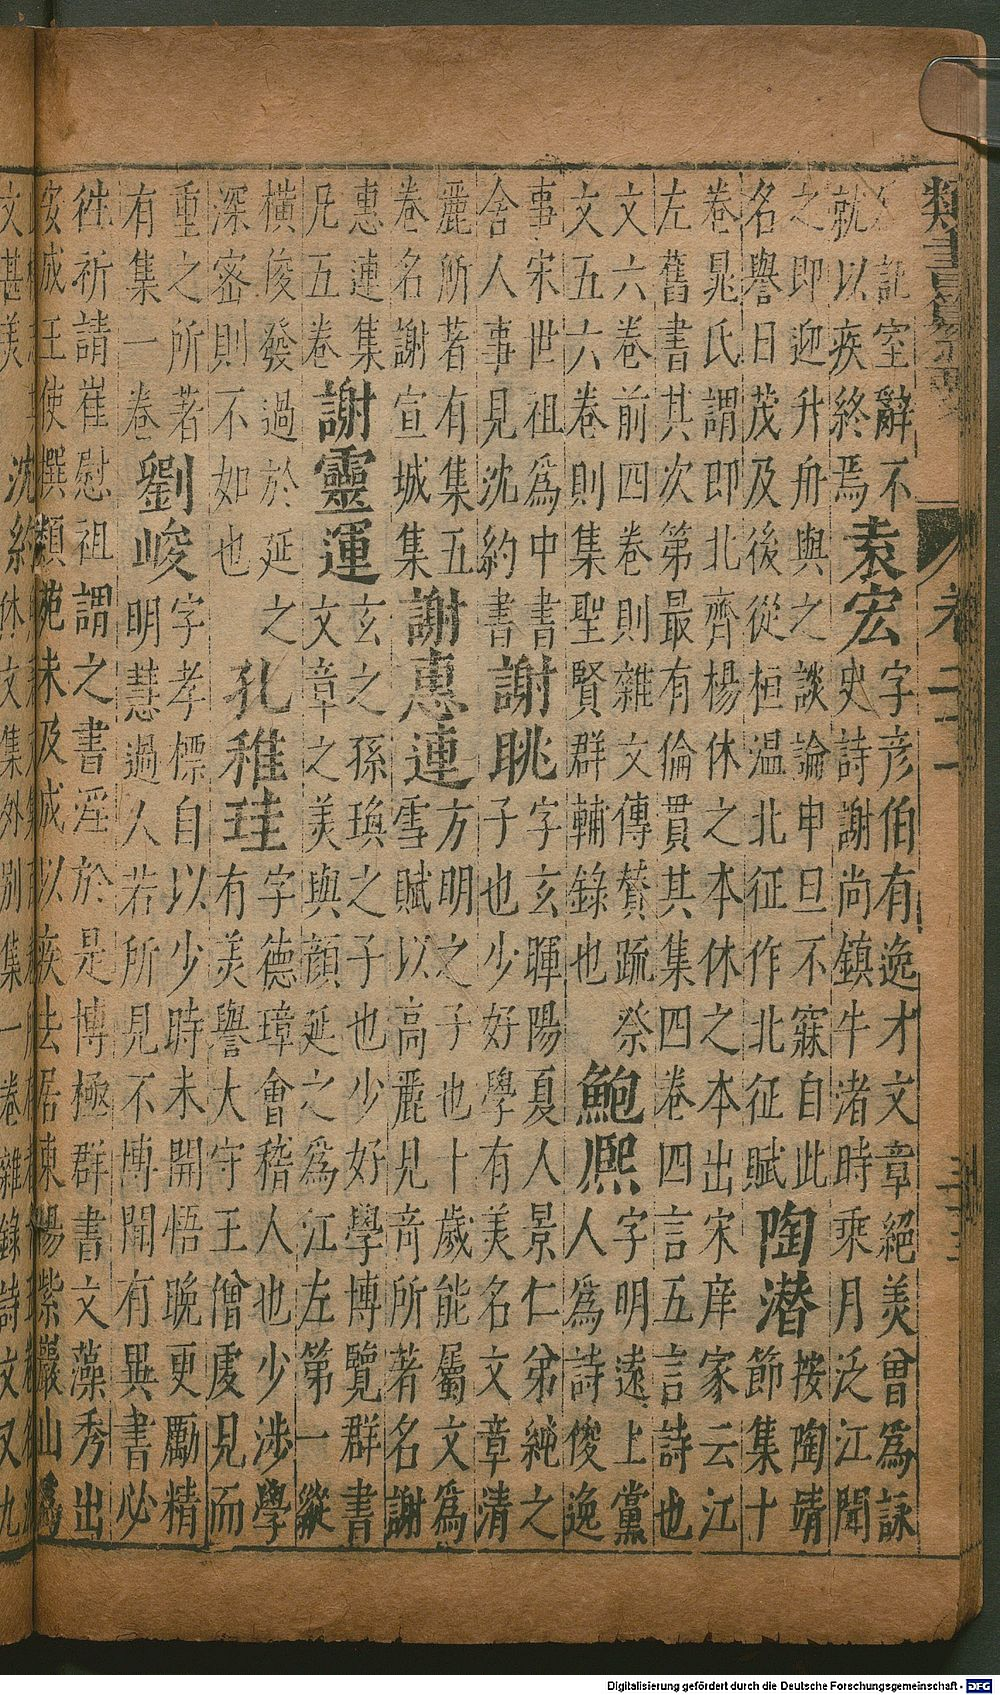 記空辭不
就以疾終焉
袁宏
字彥伯有逸才文章絕美曾為詠
史詩謝尚鎮牛渚時乘月泛江聞
之即迎升舟與之談論申旦不寐自此
名譽日茂及後從桓溫北征作北征賦
陶潛
按陶靖
節集十
卷晁氏謂即北齊楊休之本休之本出宋庠家云江
左舊書其次第最有倫貫其集四卷四言五言詩也
文六卷前四卷則雜文傳贊疏祭
文五六卷則集聖賢群輔錄也
鮑熈
字明遠上黨
人為詩俊逸
事宋世祖為中書
舍人事見沈約書
謝眺
字玄暉陽夏人景仁弟純之
子也少好學有美名文章清
麗所著有集五
卷名謝宣城集
謝惠連
方明之子也十歲能屬文為
雪賦以高麗見奇所著名謝
惠連集
凡五卷
謝靈運
玄之孫瑍之子也少好學博覽群書
文章之美與顏延之為江左第一縱
橫俊發過於延之
深密則不如也
孔稚珪
字德璋會稽人也少涉學
有美譽大守王僧虔見而
重之所著
有集一卷
劉峻
字孝標自以少時未開悟晚更勵精
明慧過人若所見不博聞有異書必
徃祈請崔慰祖謂之書淫於是博極群書文藻秀出
安成王使撰類苑未及成以疾去居東陽紫巖山
文甚美
沈約
休文集外別集一卷雜錄詩文又九
Digitalisierung gefördert durch die Deutsche Forschungsgemeinschaft - DFG